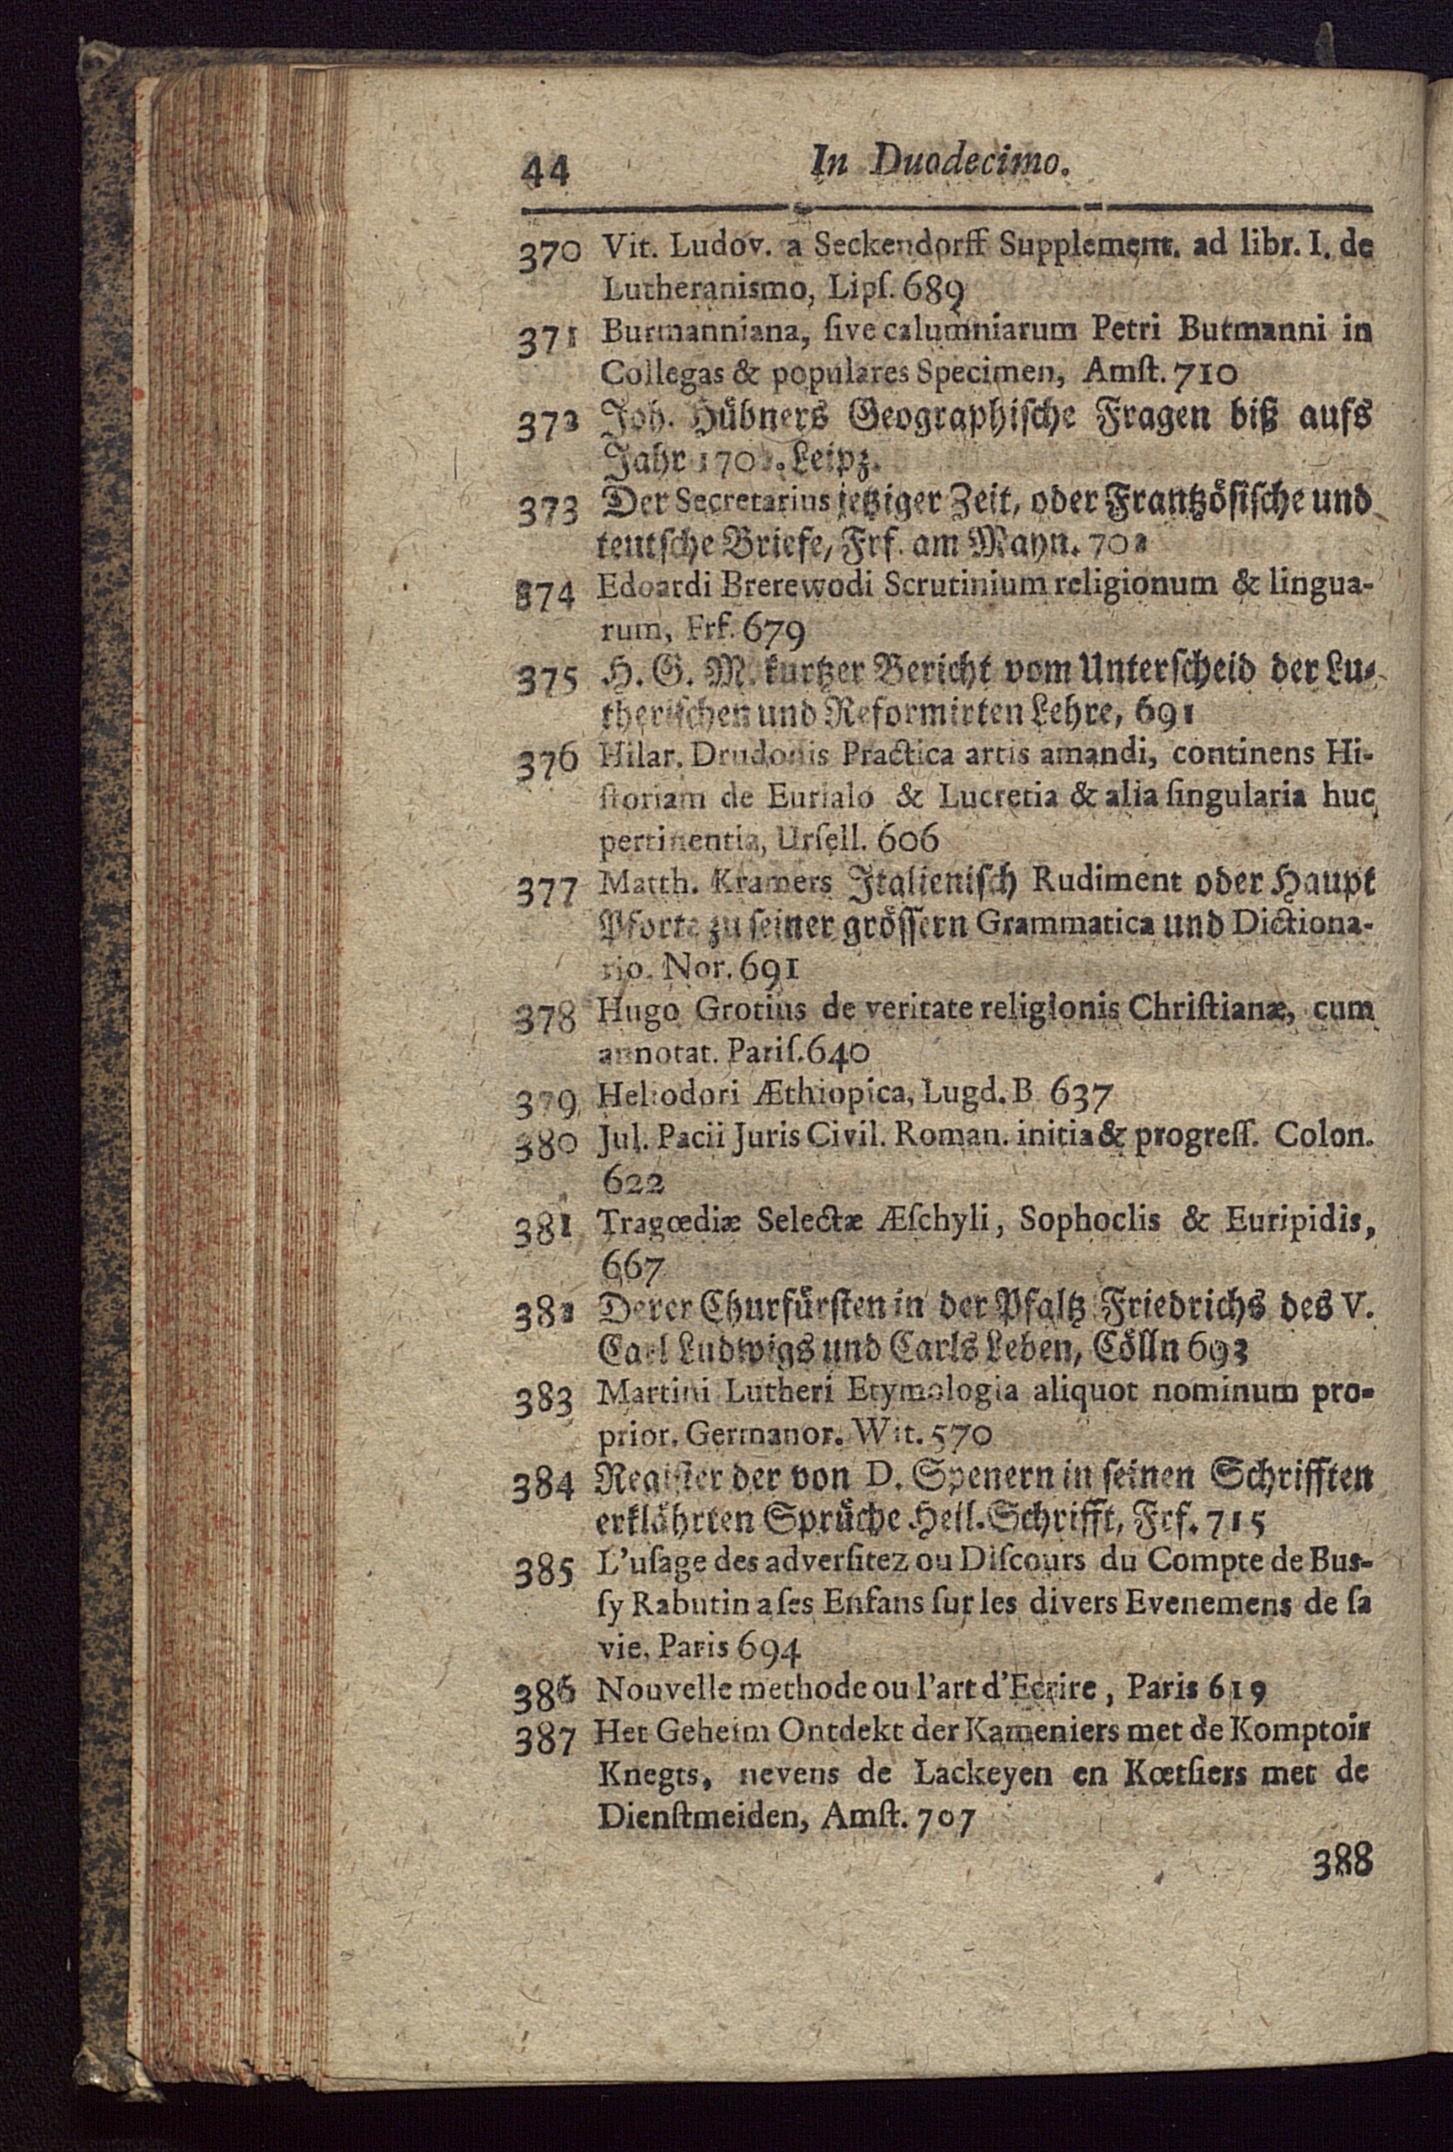 44 In Duodecimo.
370 Vit. Ludov. a Seckendorff Supplement. ad libr. I. de
Lutheranismo, Lipſ. 689
371 Burmanniana, ſive calumniarum Petri Burmanni in
Collegas & populares Specimen, Amſt. 710
372 Joh. Hübners Geographiſche Fragen biß aufs
Jahr Leipz.
373 Der Secretarius jetziger Zeit, oder Frantzöſiſche und
teutſche Briefe, Frf. am Mayn. 702
374 Edoardi Brerewodi Scrutinium religionum & lingua-
rum, Frf. 679
375 H. G. M. kurtzer Bericht vom Unterſcheid der Lu-
theriſchen und Reformirten Lehre, 691
376 Hilar. Drudonis Practica artis amandi, continens Hi-
ſtoriam de Eurialo & Lucretia & alia ſingularia huc
pertinentia, Urſell. 606
377 Matth. Kramers Italieniſch Rudiment oder Haupt
Pforte zu ſeiner gröſſern Grammatica und Dictiona-
rio. Nor. 691
378 Hugo Grotius de veritate religionis Chriſtianæ, cum
annotat. Pariſ. 640
379 Heliodori Æthiopica, Lugd. B 637
380 Jul. Pacii Juris Civil. Roman. initia & progreſſ. Colon.
622
381 Tragœdiæ Selectæ Æſchyli, Sophoclis & Euripidis,
667
382 Derer Churfürſten in der Pfaltz Friedrichs des V.
Carl Ludwigs und Carls Leben, Cölln 693
383 Martini Lutheri Etymologia aliquot nominum pro-
prior. Germanor. Wit. 570
384 Regiſter der von D. Spenern in ſeinen Schrifften
erklährten Sprüche Heil. Schrifft, Frf. 715
385 L'uſage des adverſitez ou Diſcours du Compte de Bus-
ſy Rabutin a ſes Enfans ſur les divers Evenemens de ſa
vie, Paris 694
386 Nouvelle methode ou l'art d'Ecrire, Paris 619
387 Het Geheim Ontdekt der Kameniers met de Komptoir
Knegts, nevens de Lackeyen en Kœtſiers met de
Dienſtmeiden, Amſt. 707
388